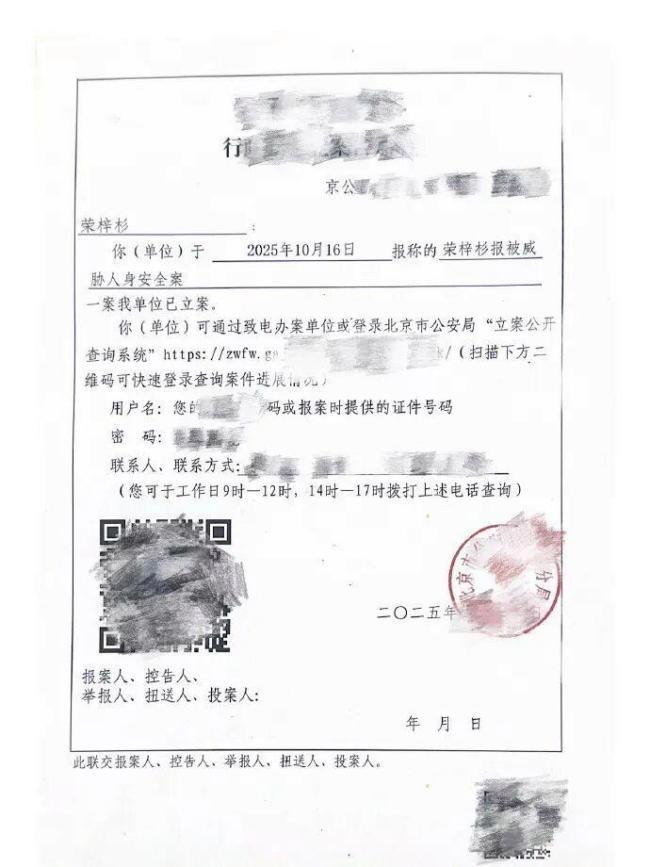 行
京公
荣梓杉 :
你（单位）于 2025年10月16日 报称的 荣梓杉报被威
胁人身安全案
一案我单位已立案。
你（单位）可通过致电办案单位或登录北京市公安局“立案公开
查询系统”https://zwfw.g /（扫描下方二
维码可快速登录查询案件进展情况）
用户名：您的 码或报案时提供的证件号码
密 码：
联系人、联系方式：
（您可于工作日9时—12时，14时—17时拨打上述电话查询）
北京市公 分局
二〇二五年
报案人、控告人、
举报人、扭送人、投案人：
年 月 日
此联交报案人、控告人、举报人、扭送人、投案人。